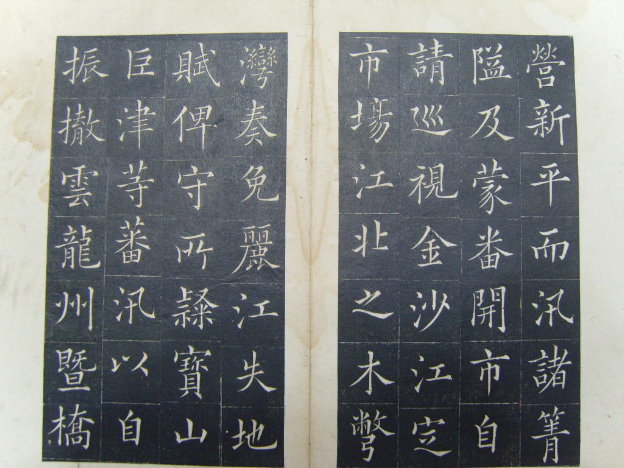 營新平而汛諸箐
隘及蒙畨開市自
請巡視金沙江定
市塲江北之木彆
灣奏免麗江失地
賦俾守所隸寶山
巨津等蕃汛以自
振撤雲龍州暨橋